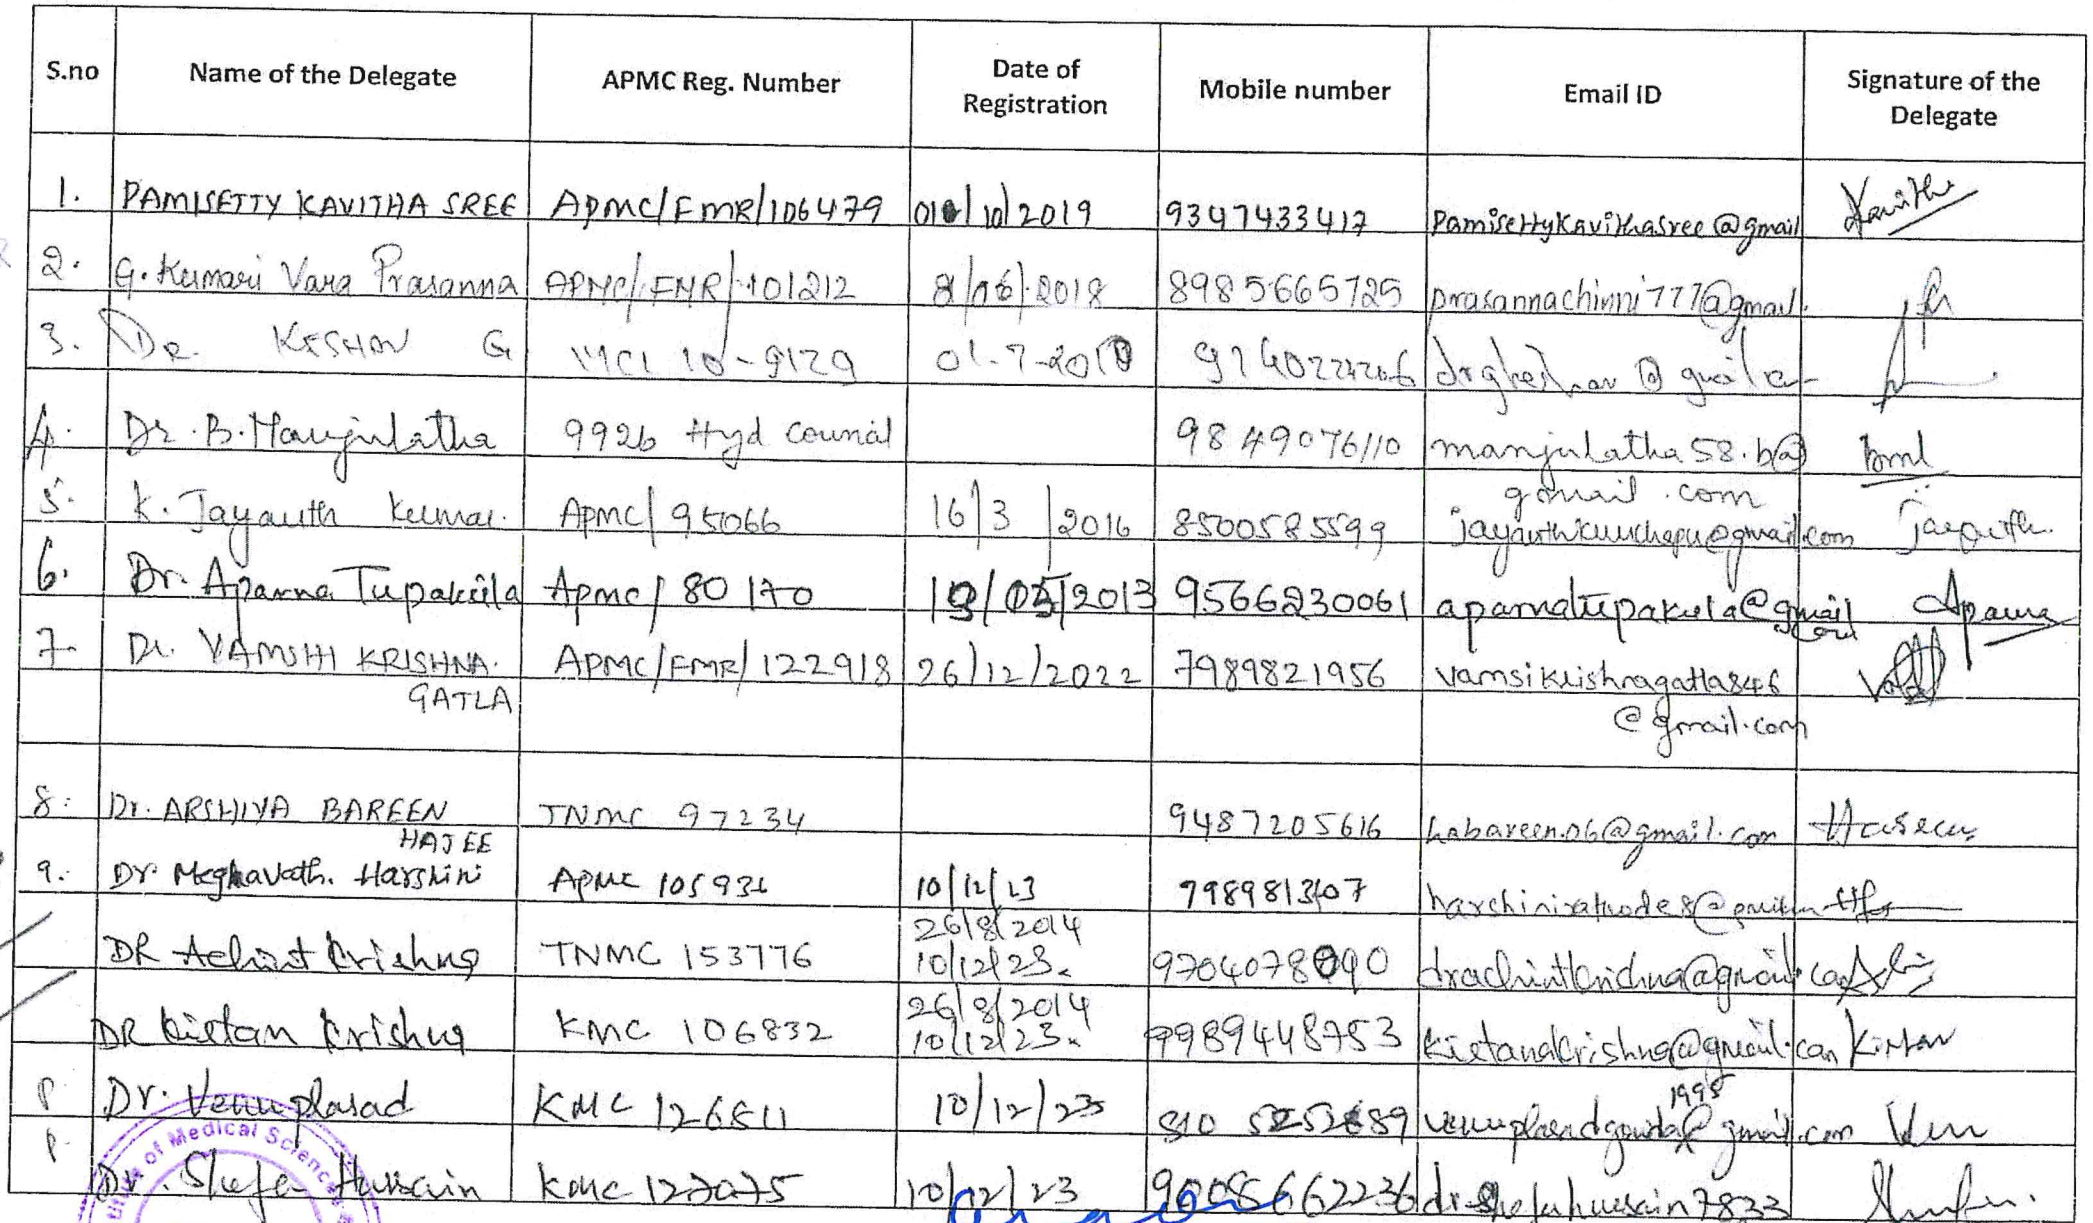 S.no Name of the Delegate APMC Reg. Number Date of Registration Mobile number Email ID Signature of the Delegate
1. PAMISETTY KAVITHA SREE APMC/FMR/106479 01/10/2019 9347433417 Pamisettykavithasree@gmail Kavitha
2. G. Kumari Vara Prasanna APMC/FMR/101212 8/06/2018 8985665725 prasannachinni777@gmail.
3. DR. KESHAV G MCI 10-9129 01-7-2010
4. Dr. B. Manjulatha 9926 Hyd Council 9849076110 manjulatha58.b@ bml
gmail.com
5. K. Jayanth Kumar. APMC/95066 16/3/2016 8500585599 Jayanth.
6. Dr. Aparna Tupakula Apmc/80170 2013 9566230061 aparnatupakula@gmail Aparna
.com
7. Dr. VAMSHI KRISHNA. APMC/FMR/122918 26/12/2022 7989821956 vamsikrishnagatla846
GATLA @gmail.com
8. Dr. ARSHIYA BAREEN TNMC 97234 9487205616 habareen.06@gmail.com
HAJEE
9. Dr. Meghavath. Harshini APMC 105936 10/12/23
26/8/2014
DR Achint Krishna TNMC 153776 10/12/23. 9704078090 drachintkrishna@gmail.com
26/8/2014
DR Kirtan Krishna KMC 106832 10/12/23. 9989448753 kirtanakrishna@gmail.com Kirtan
1998
P Dr. Venuprasad KMC 126811 10/12/23 venuprasadgowda@gmail.com Ven
P. Dr. Shefa Hussain KMC 127075 10/12/23 90085662236 dr.shefahussain7833
of Medical Sciences